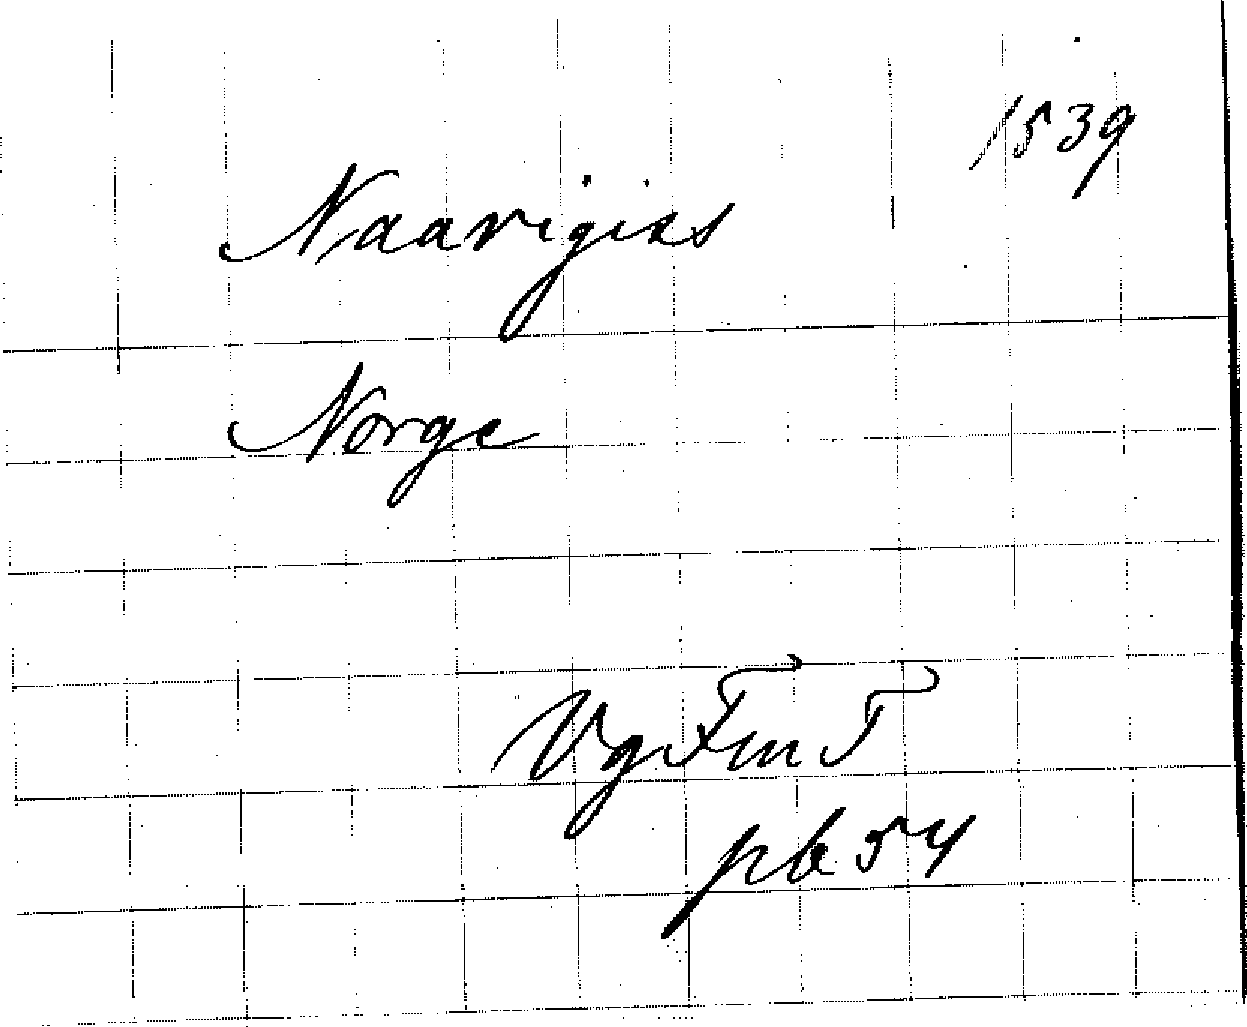 1539
Naarigies
Norge
VgFmT
pb 54